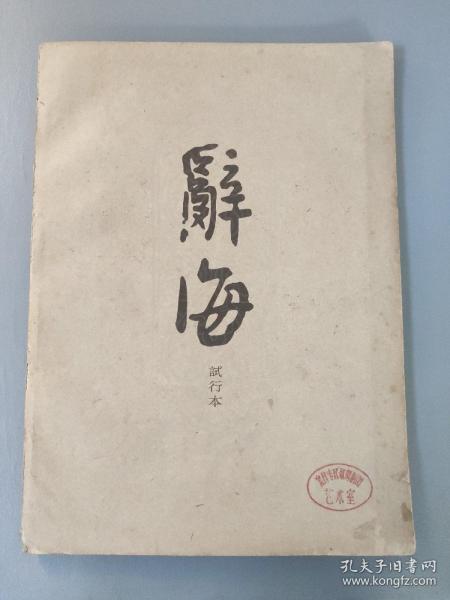 辭海
試行本
艺术室
孔夫子旧书网
www.kongfz.com